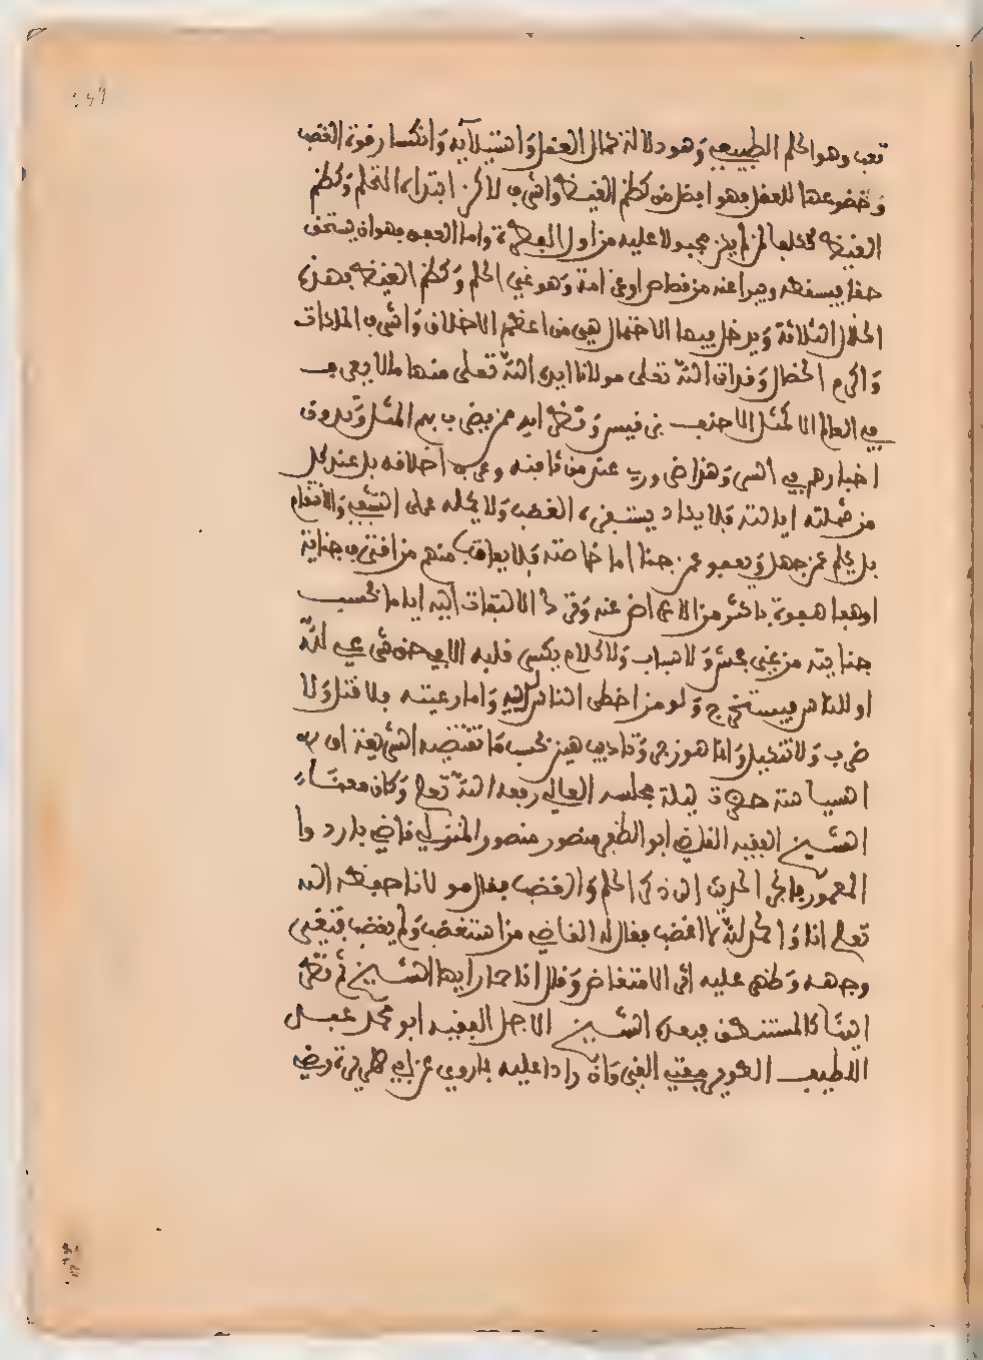 تعب وهو الحلم الطبيعي وهو دلالة كمال العقل واستيلايه وانكسار قوة الغضب
وخضوعها للعقل فهو افضل من كظم الغيظ واشرف لاكن ابتداء التحلم وكظم
الغيظ تكلفا لمن لم يكن مجبولا عليه من اول الفطرة واما العفو فهو ان يستحق
حقا فيسقطه ويبرا عنه من قصاص او غرامة وهو غير الحلم وكظم الغيظ فهذه
الخلال الثلاثة ويدخل فيها الاحتمال هي من اعظم الاخلاق واشرف الملكات
واكرم الخصال وقد اتى الله تعلى مولانا ايده الله تعلى منها ما لا يعرف
في العالم الا لمثل الاحنف بن قيس ونظرايه ممن يضرب بهم المثل وتدون
اخبارهم في السير وهذا ضروري عند من ثافنه وعرف اخلاقه بل عند كل
من شملته ايالته فلا يكاد يستفزه الغضب ولا يحمله على التشفي والانتقام
بل يحلم عمن جهل ويعفو عمن جنا اما خاصته فلا يعاقب منهم من اقترف جناية
او هفا هفوة باكثر من الاعراض عنه وترك الالتفات اليه اياما بحسب
جنايته من غير فحش ولا سباب ولا كلام يكسر قلبه الا في حق شرعي لله
او للناس فيستخرج ولو من اخطى الناس لديه واما رعيته فلا قتل ولا
ضرب ولا تنكيل وانما هو زجر وتاديب هين بحسب ما تقتضيه الشريعة او
السياسة حضرت ليلة مجلسه العالي رفعه الله تعلى وكان معنا
الشيخ الفقيه القاضي ابو الظفر منصور منصور المنزلي قاضي باردوا
المعمور فانجر الحديث الى ذكر الحلم والغضب فقال مولانا حفظه الله
تعلى انا والحمد لله لا اغضب فقال له القاضي من استغضب ولم يغضب فتغير
وجهه وظهر عليه اثر الامتعاض وقال انا حمار ايها الشيخ ثم نظر
الينا كالمستنطق فبعد الشيخ الاجل الفقيه ابو محمد عبد
اللطيف الطوير مفتي القيروان رادا عليه بما روي عن ابي هريرة رضي